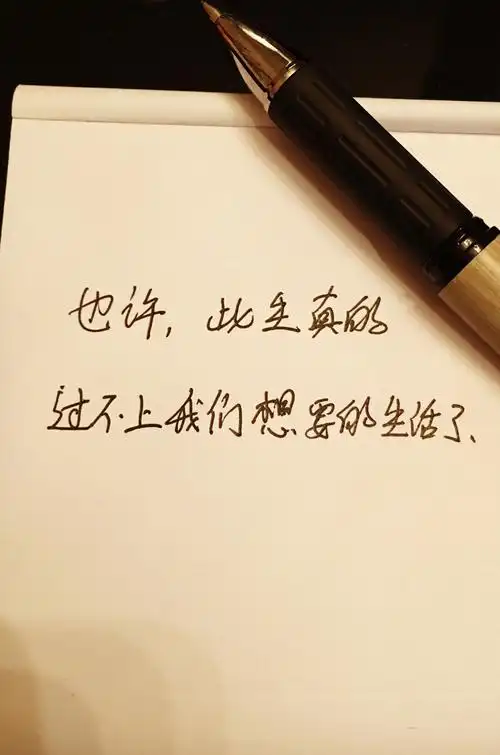 也许，此生真的
过不上我们想要的生活了、